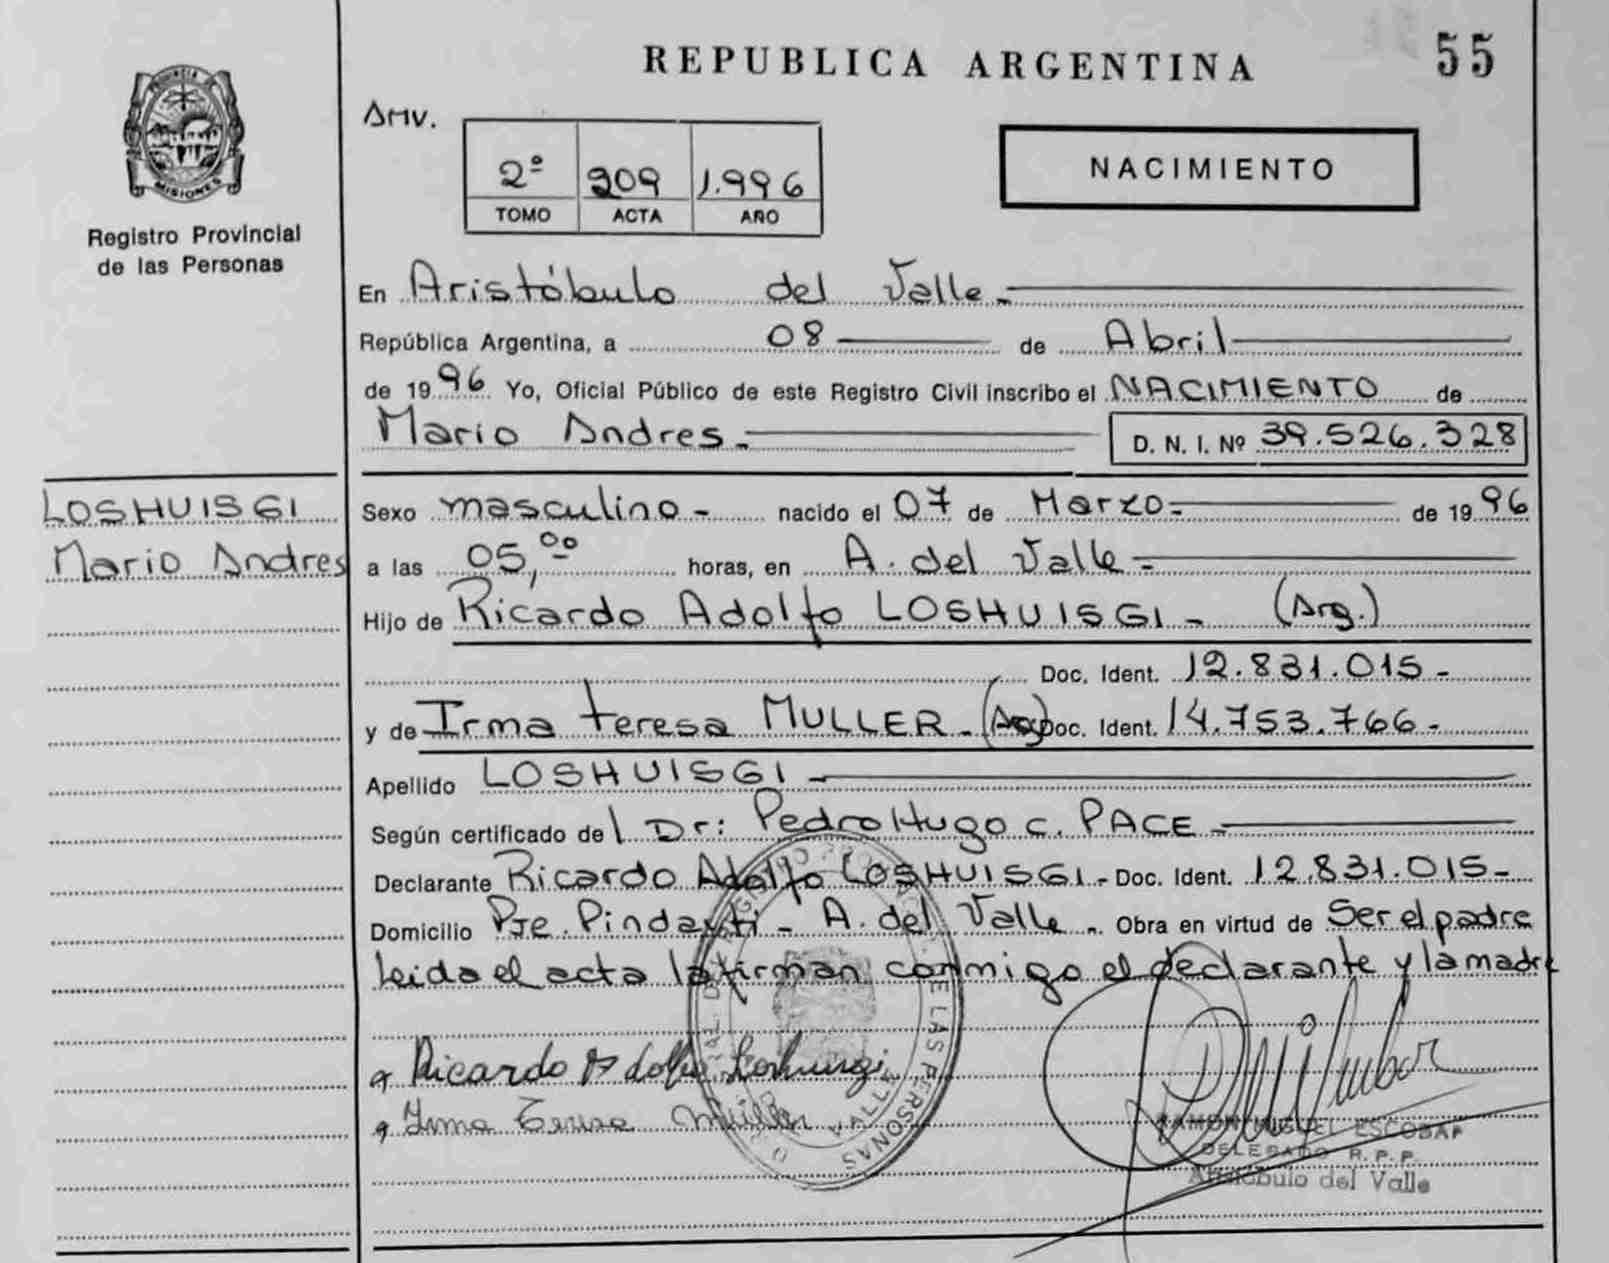 REPUBLICA ARGENTINA
55
PROVINCIA DE
MISIONES
Registro Provincial
de las Personas
AMV.
2º 209 1.996
TOMO ACTA AÑO
NACIMIENTO
En Aristóbulo del Valle.-
República Argentina, a 08 de Abril
de 1996 Yo, Oficial Público de este Registro Civil inscribo el NACIMIENTO de
Mario Andres.- D. N. I. Nº 39.526.328
LOSHUISGI
Mario Andres
Sexo masculino - nacido el 07 de Marzo.- de 1996
a las 05,ºº horas, en A. del Valle -
Hijo de Ricardo Adolfo LOSHUISGI - (Arg.)
Doc. Ident. 12.831.015-
y de Irma teresa MULLER - (Arg) Doc. Ident. 14.753.766-
Apellido LOSHUISGI -
Según certificado del Dr: Pedro Hugo C. PACE -
Declarante Ricardo Adolfo LOSHUISGI - Doc. Ident. 12.831.015-
Domicilio Pje. Pindayti - A. del Valle - Obra en virtud de Ser el padre
leida el acta la firman conmigo el declarante y la madre
Ricardo Adolfo Loshuisgi
Irma Teresa Müller
DE LAS PERSONAS
RAMON MIGUEL ESCOBAR
DELEGADO R.P.P.
Aristóbulo del Valle